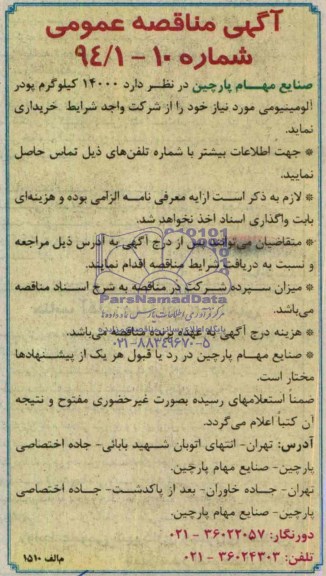 آگهی مناقصه عمومی
شماره ۱۰ - ۹۴/۱
صنایع مهـام پارچین در نظـر دارد ۱۴۰۰۰ کیلوگرم پودر
آلومینیومی مورد نیاز خود را از شرکت واجد شرایط خریداری
نماید.
* جهت اطلاعات بیشتر با شماره تلفن‌های ذیل تماس حاصل
نمایید.
* لازم به ذکر است ارایه معرفی نامـه الزامی بوده و هزینه‌ای
بابت واگذاری اسناد اخذ نخواهد شد.
* متقاضیان می‌توانند پس از درج آگهی به آدرس ذیل مراجعه
و نسبت به دریافت شرایط مناقصه اقدام نمایند.
* میزان سپرده شرکت در مناقصه به شرح اسناد مناقصه
می‌باشد.
ParsNamadData
* هزینه درج آگهی به عهده برنده مناقصه می‌باشد.
پایگاه اطلاع رسانی مناقصه و مزایده
۰۲۱-۸۸۳۴۹۶۷۰-۵
* صنایع مهـام پارچین در رد یا قبول هر یک از پیشنهادها
مختار است.
ضمناً استعلامهای رسیده بصورت غیرحضوری مفتوح و نتیجه
آن کتباً اعلام می‌گردد.
آدرس: تهران- انتهای اتوبان شـهید بابائی- جاده اختصاصی
پارچین- صنایع مهام پارچین.
تهران- جـاده خاوران- بعد از پاکدشـت- جـاده اختصاصی
پارچین- صنایع مهام پارچین.
دورنگار: ۳۶۰۲۲۰۵۷ - ۰۲۱
تلفن: ۳۶۰۲۴۳۰۳ - ۰۲۱
م‌الف ۱۵۱۰